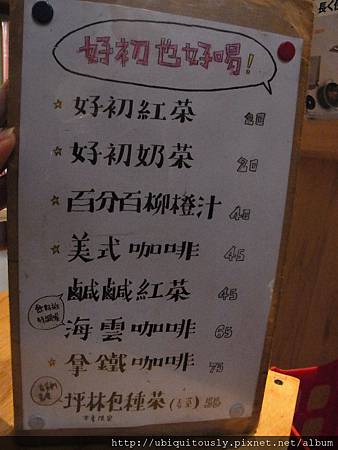 好初也好喝!
好初紅茶 20
好初奶茶 20
百分百柳橙汁 40
美式咖啡 45
鹹鹹紅茶 45
海雲咖啡 65
拿鐵咖啡 75
坪林包種茶(壺) 
http://ubiquitously.pixnet.net/album